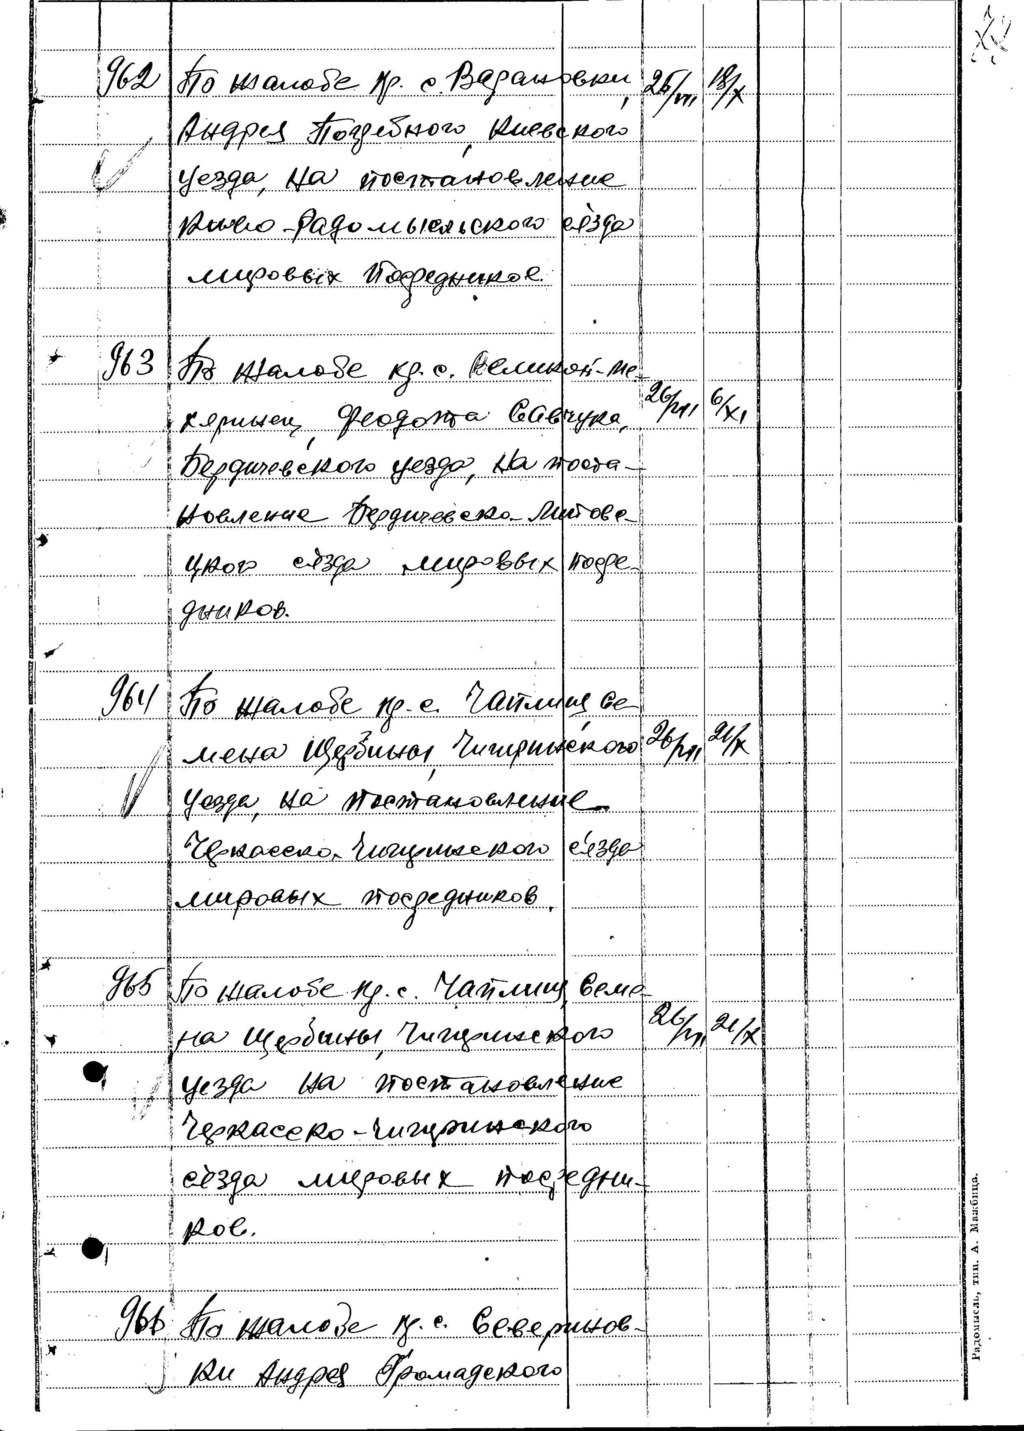 962 По жалобе кр. с. Вадановки, 26/VII 18/X
Андрея Погребного, Киевского
уезда, на постановление
Киево-Радомысльского с'езда
мировых посредников.
963 По жалобе кр. с. Великой-ме-
жеринец, Феодота Савчука, 26/VII 6/XI
Бердичевского уезда, на поста-
новление Бердичевско-Липове-
цкого с'езда мировых посре-
дников.
964 По жалобе кр. с. Чаплищ, Се-
мена Щербины, Чигиринского 26/VII 21/X
уезда, на постановление
Черкасско-Чигиринского с'езда
мировых посредников.
965 По жалобе кр. с. Чаплищ, Семе-
на Щербины, Чигиринского 26/VII 21/X
уезда на постановление
Черкасско-Чигиринского
с'езда мировых посредни-
ков.
966 По жалобе кр. с. Северинов-
ки Андрея Громадского
Радомысль, тип. А. Мажбица.